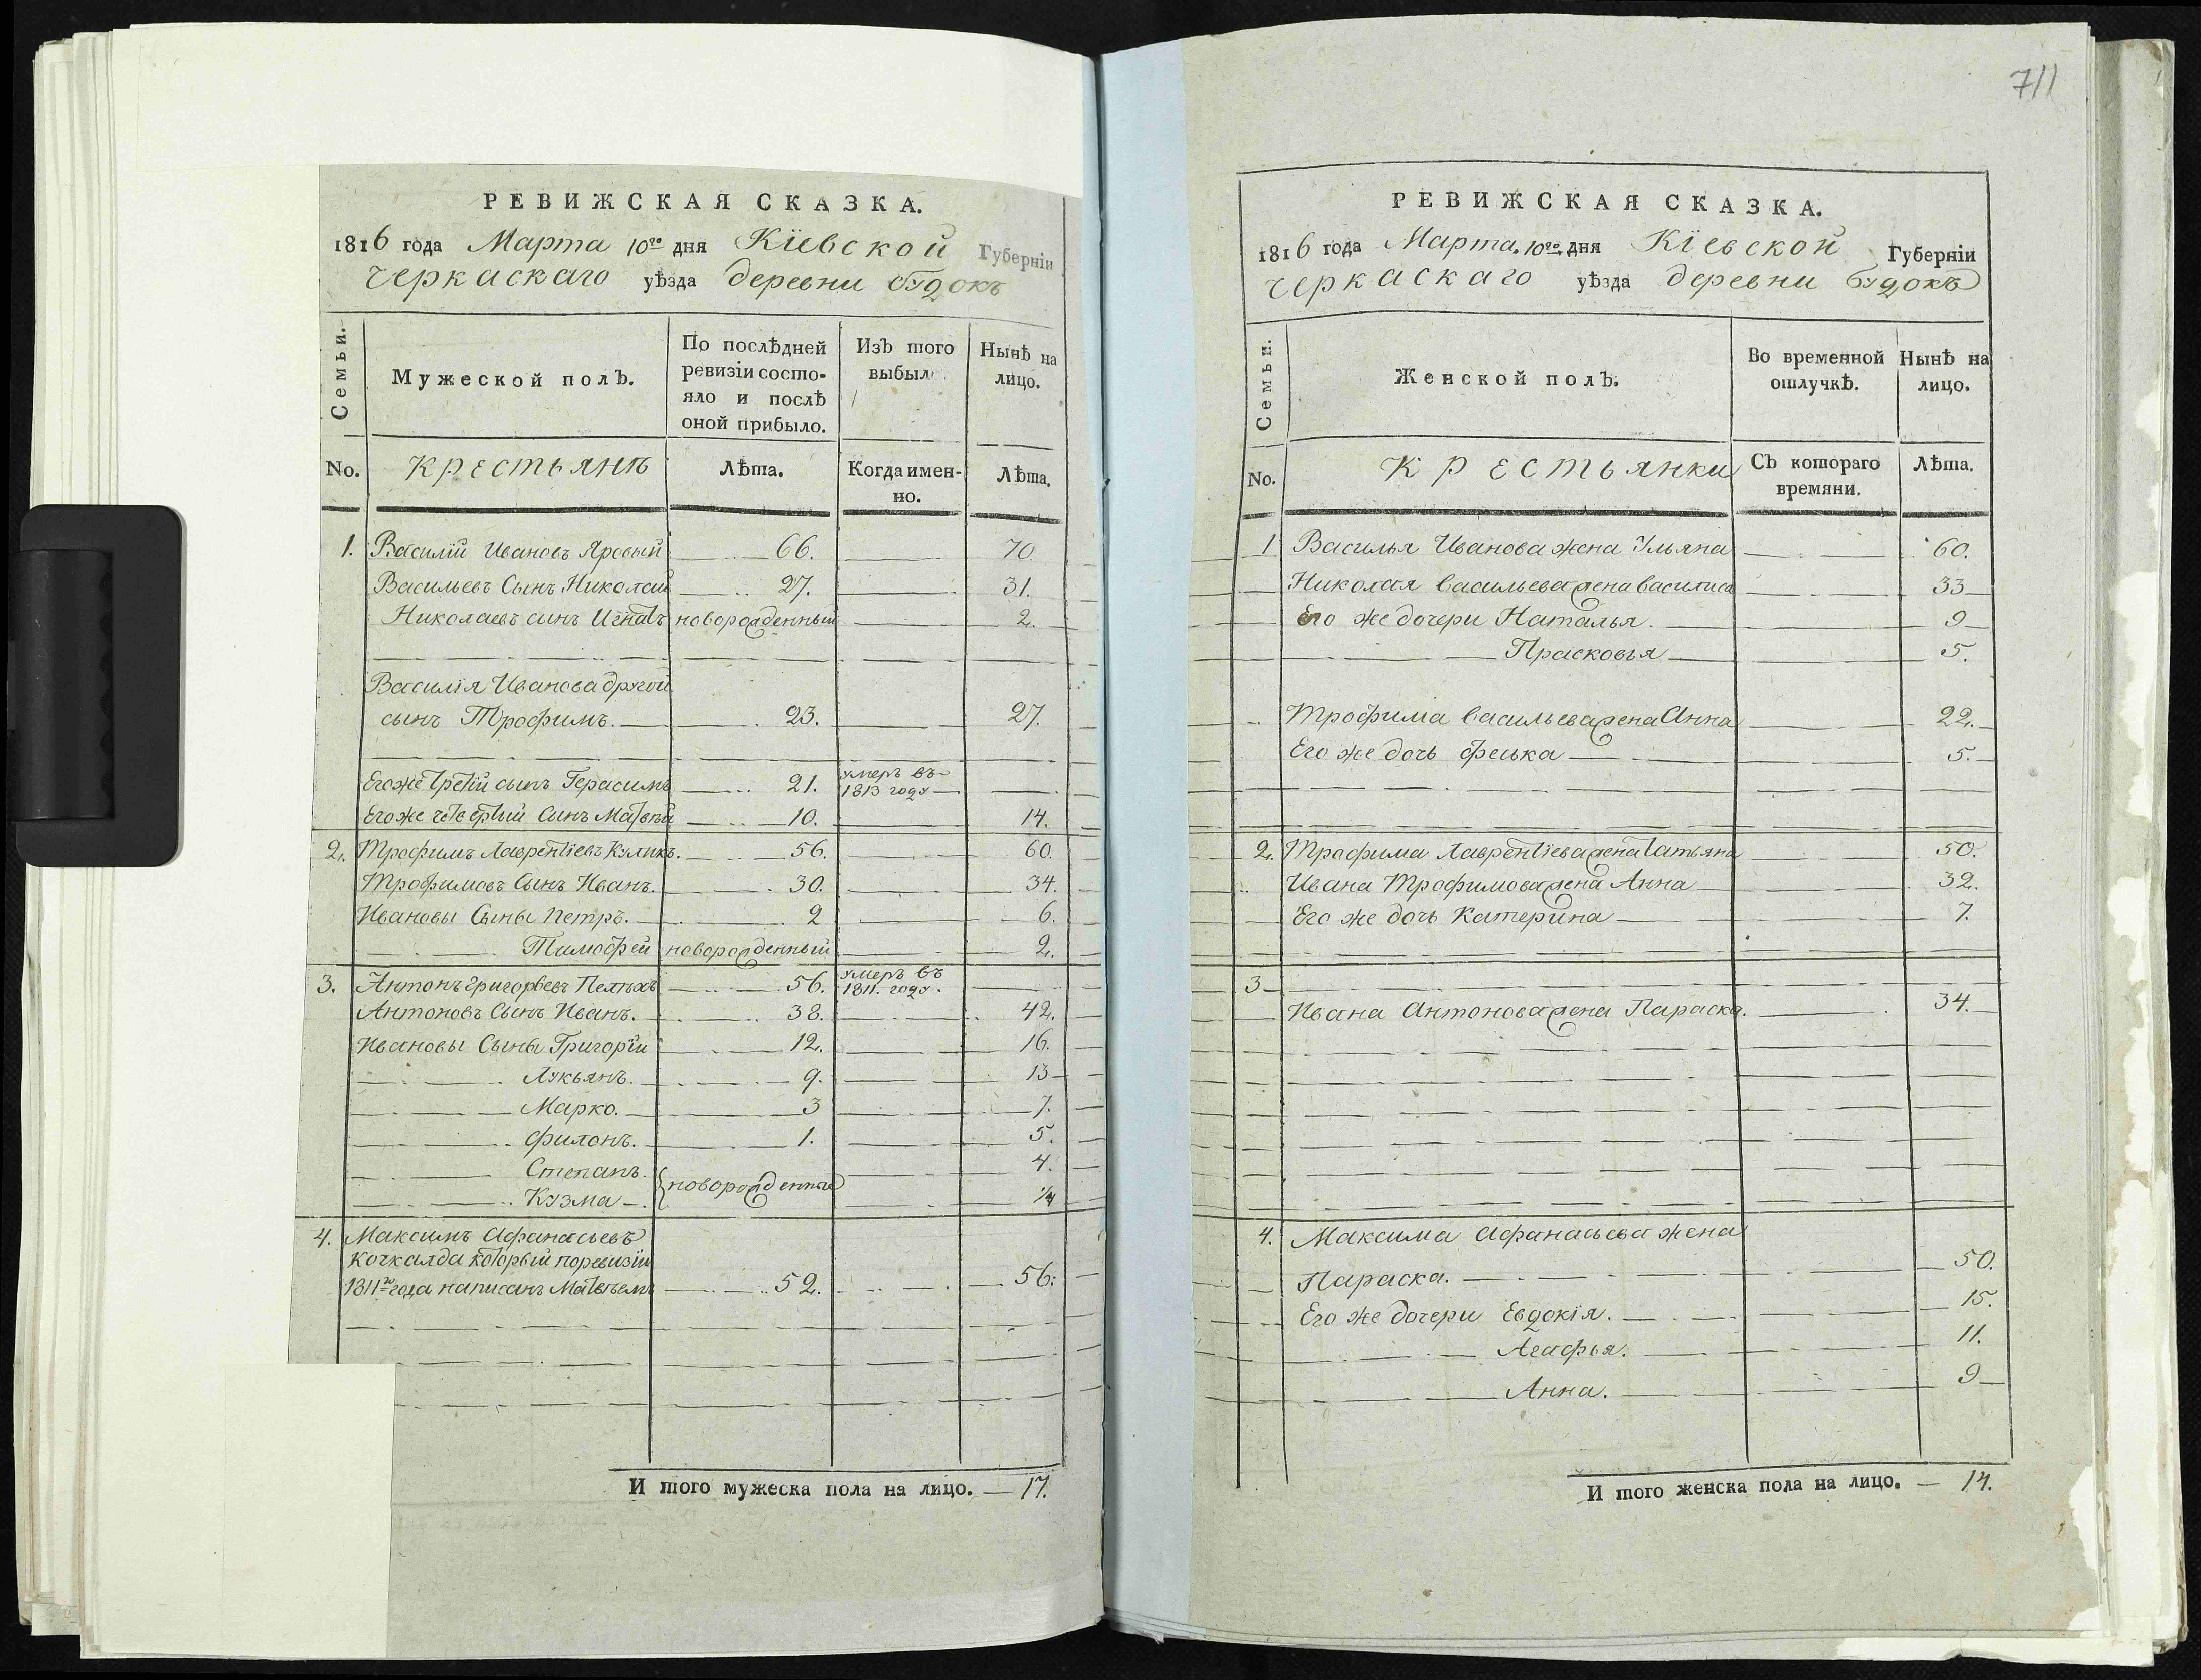 711
РЕВИЖСКАЯ СКАЗКА.
1816 года Марта 10го дня Кїевской Губернїи
черкаскаго уѣзда деревни Будокъ
Семьи.
Мужеской полЪ.
По послѣдней ревизїи состо-
яло и послѣ
оной прибыло.
ИзЪ того
выбыл
Нынѣ на
лицо.
No. крестьянѣ Лѣта. Когда имен-
но. Лѣта.
1. Василїй Ивановъ Яровый 66. 70
Васильевъ Сынъ Николай 27. 31.
Николаевъ сынъ Игнатъ новорожденный 2.
Василїя Иванова другой
сынъ Трофимъ. 23. 27.
Егоже третїй сынъ Герасимъ 21. умеръ въ
1813 году
Егоже четвертый Сынъ Матвѣй 10. 14.
2. Трофимъ Лаврентїевъ Куликъ. 56. 60.
Трофимовъ Сынъ Иванъ. 30. 34.
Ивановы Сыны Петръ. 2 6.
Тимофей новорожденный 2.
3. Антонъ Григорьевъ Пелпахъ 56. умеръ въ
1811. году.
Антоновъ Сынъ Иванъ. 38. 42.
Ивановы Сыны Григорїй 12. 16.
Лукьянъ. 9. 13
Марко. 3 7.
Филонъ. 1. 5.
Степанъ. 4.
Кузма новорожденные 1/4
4. Максимъ Афанасьевъ
Кочкалда который поревизїи
1811го года написанъ Матвѣемъ 52. 56.
И того мужеска пола на лицо. 17.
РЕВИЖСКАЯ СКАЗКА.
1816 года Марта. 10го дня Кїевской Губернїи
черкаскаго уѣзда деревни будокъ
Семьи.
Женской полЪ.
Во временной
отлучкѣ.
Нынѣ на
лицо.
No. крестьянки СЪ котораго
времяни. Лѣта.
1 Василья Иванова жена Ульяна 60.
Николая васильева жена василиса 33
Его же дочери Наталья. 9
Прасковья 5.
Трофима васильева жена Анна 22.
Его же дочь феська 5.
2. Трофима Лаврентїева жена татьяна 50.
Ивана Трофимова жена Анна 32.
Его же дочь Катерина 7.
3
Ивана Антонова жена Параска. 34.
4. Максима Афанасьева жена
Параска. 50.
Его же дочери Евдокїя. 15.
Агафья. 11.
Анна. 9
И того женска пола на лицо. 14.